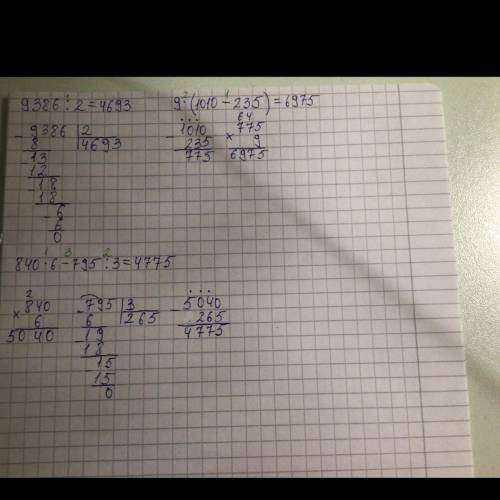 9386 : 2 = 4693
9 · (1010 - 235) = 6975
- 9386 | 2
8 | 4693
- 13
12
- 18
18
- 6
6
0
- 1010
235
775
64
× 775
9
6975
840 · 6 - 795 : 3 = 4775
2
× 840
6
5040
- 795 | 3
6 | 265
- 19
18
- 15
15
0
- 5040
265
4775